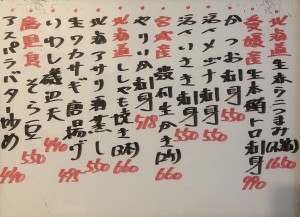 北海道 生本ウニつまみ(木箱) 1650
愛媛産 生本鮪トロ刺身 990
かつお刺身 550
活〆メジナ刺身 550
活〆いさき刺身 550
宮城産 殻付生かき(2ヶ) 660
やりいか刺身 518
北海道 ししゃも焼き(3本) 660
北海アサリ酒蒸し 550
生ワカサギ唐揚げ 495
いわし磯辺天 440
鹿児島 そら豆 550
アスパラバター炒め 440